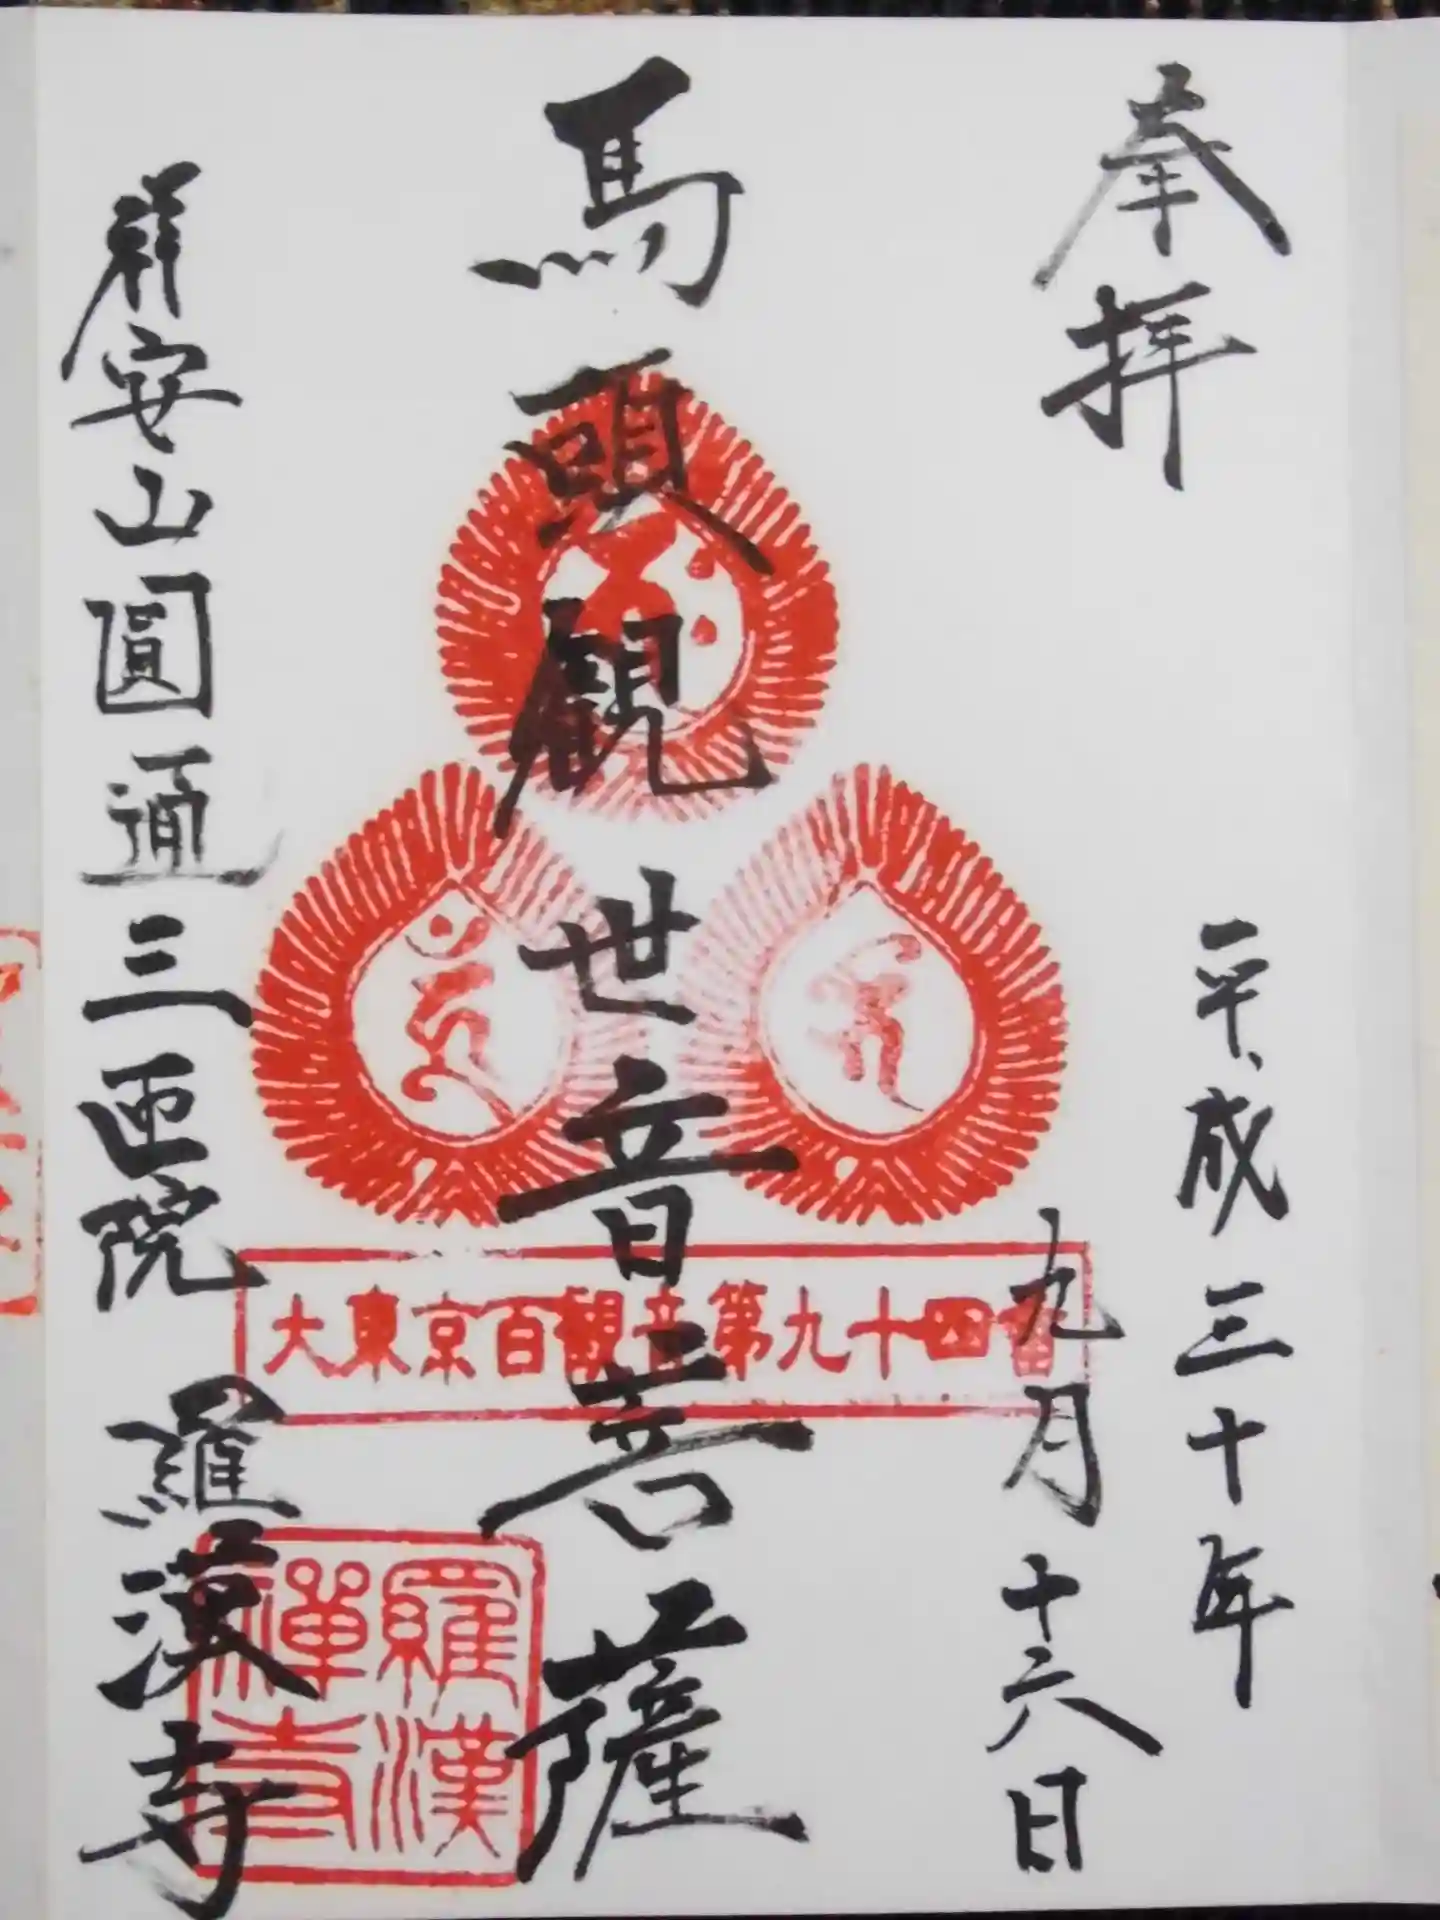 奉拝
平成三十年
九月十六日
馬頭觀世音菩薩
大東京百観音第九十四番
祥安山圓通三匝院
羅漢寺
羅漢
禅寺